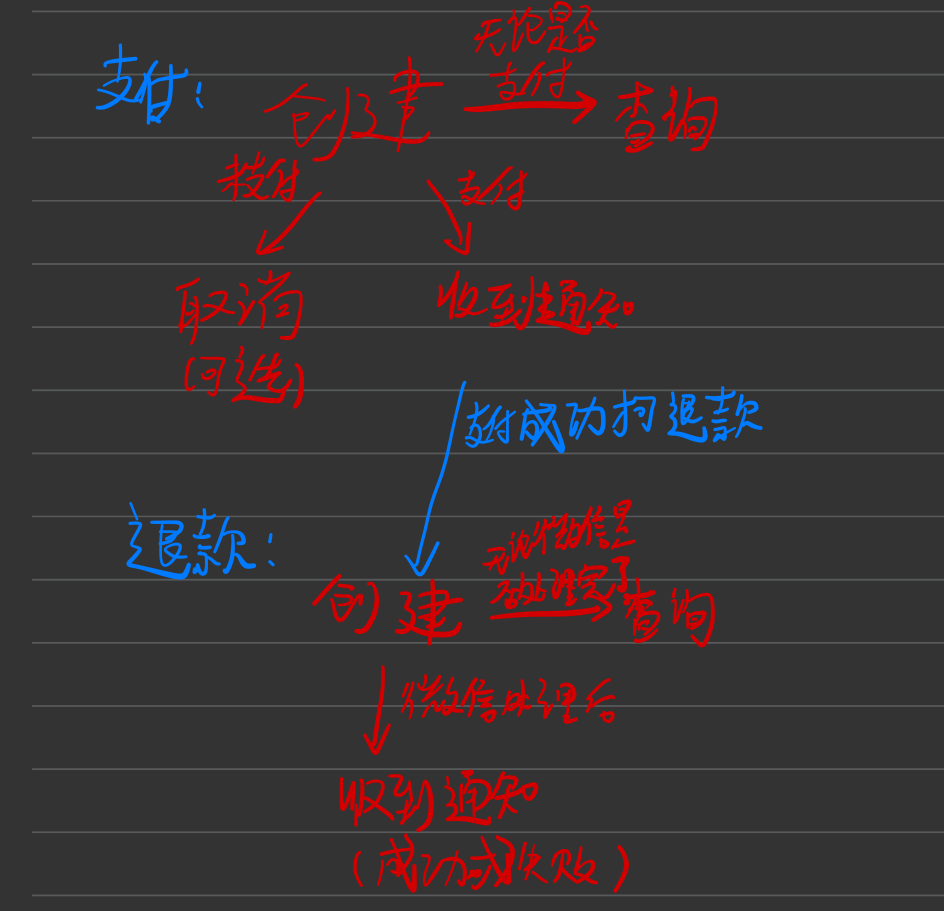 无论是否
支付
支付：
创建
查询
没付
支付
取消
（可选）
收到通知
支付成功才可退款
退款：
创建
无论微信是
否处理完了
查询
微信处理后
收到通知
（成功或失败）